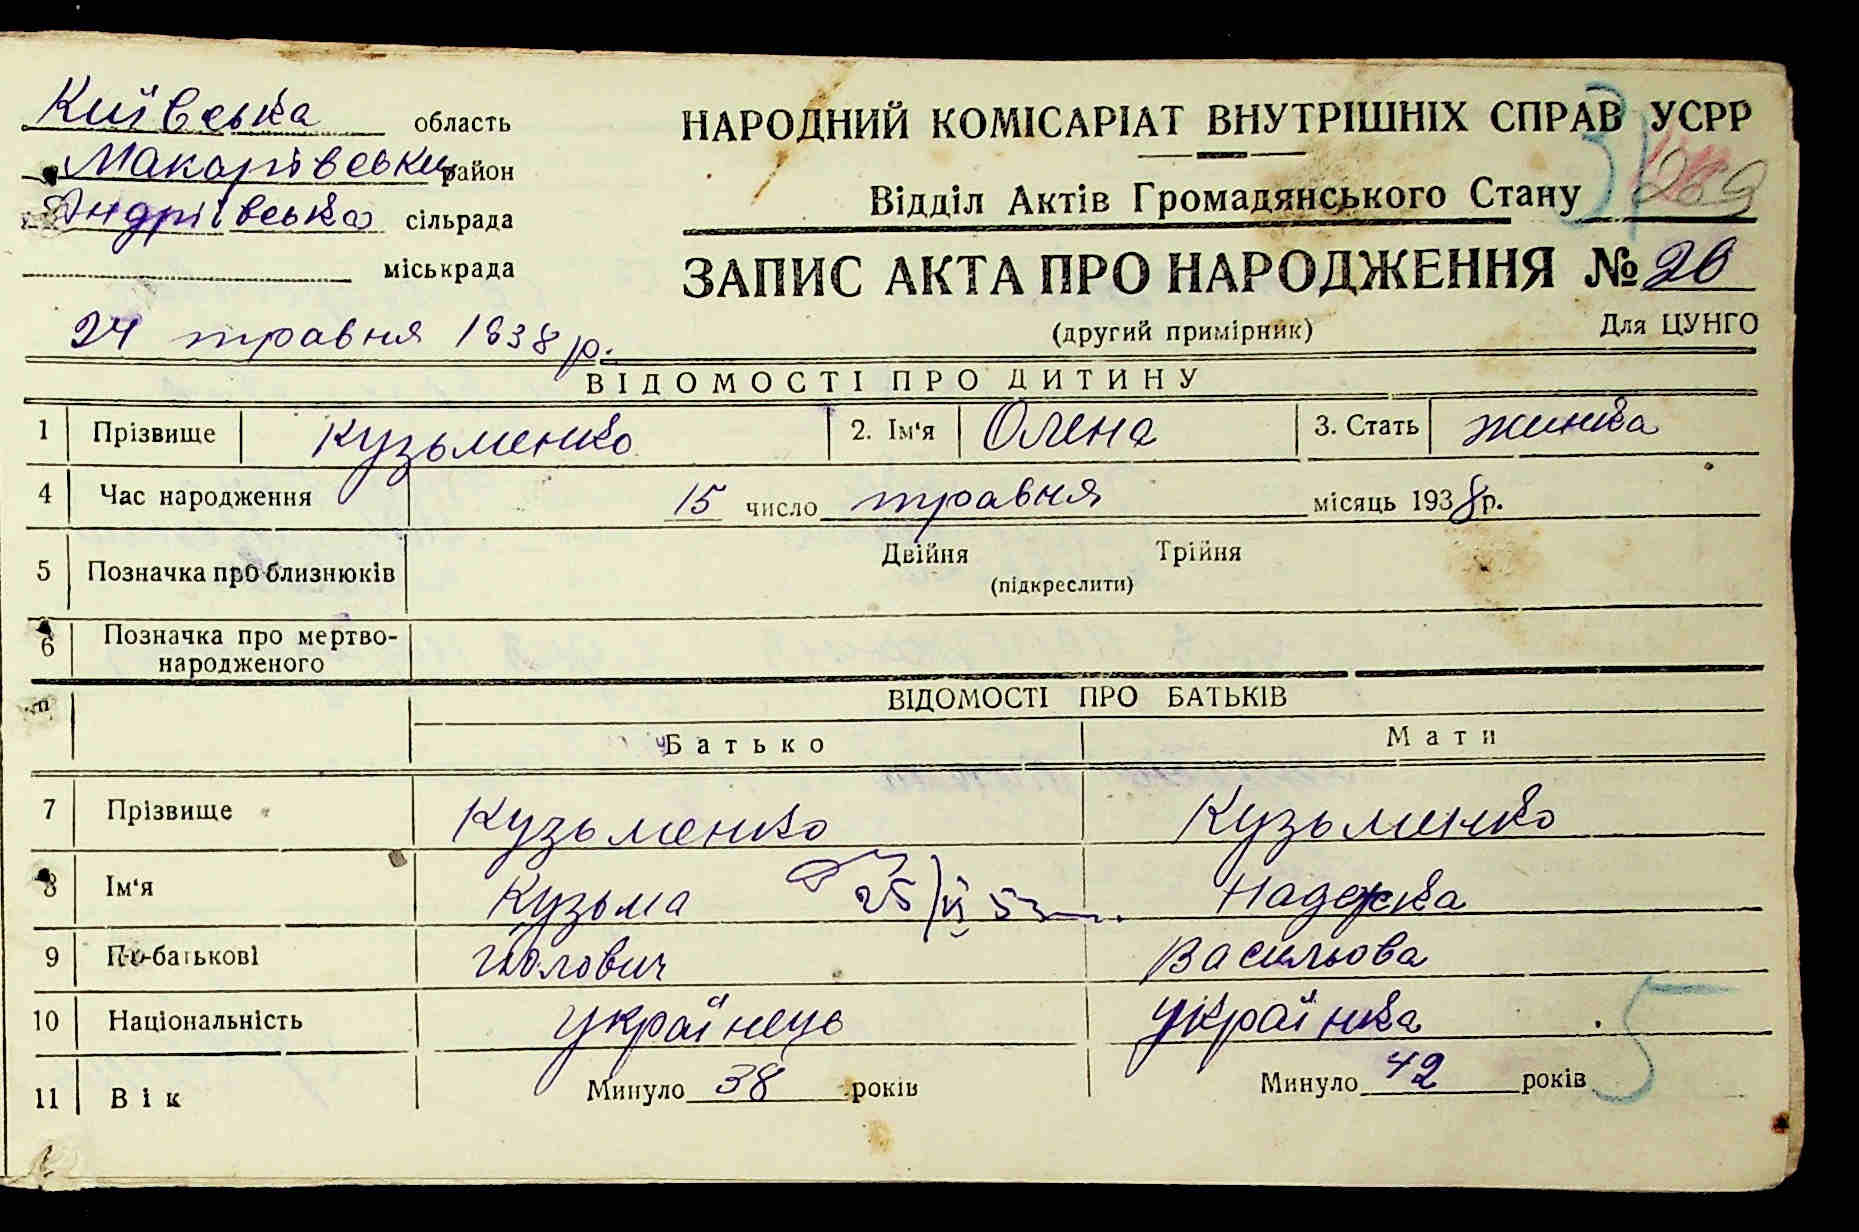 Київська область
Макарівський район
Андріївська сільрада
міськрада
НАРОДНИЙ КОМІСАРІАТ ВНУТРІШНІХ СПРАВ УСРР
Відділ Актів Громадянського Стану
31
269
ЗАПИС АКТА ПРО НАРОДЖЕННЯ № 20
24 травня 1938 р.
(другий примірник)
Для ЦУНГО
ВІДОМОСТІ ПРО ДИТИНУ
1 Прізвище Кузьменко 2. Ім'я Олена 3. Стать жинка
4 Час народження 15 число травня місяць 1938 р.
5 Позначка про близнюків Двійня Трійня
(підкреслити)
6 Позначка про мертво-
народженого
ВІДОМОСТІ ПРО БАТЬКІВ
Батько Мати
7 Прізвище Кузьменко Кузьменко
8 Ім'я Кузьма 25/VI 53 Надежка
9 По-батькові Васильова
10 Національність українець українка
11 Вік Минуло 38 років Минуло 42 років
5